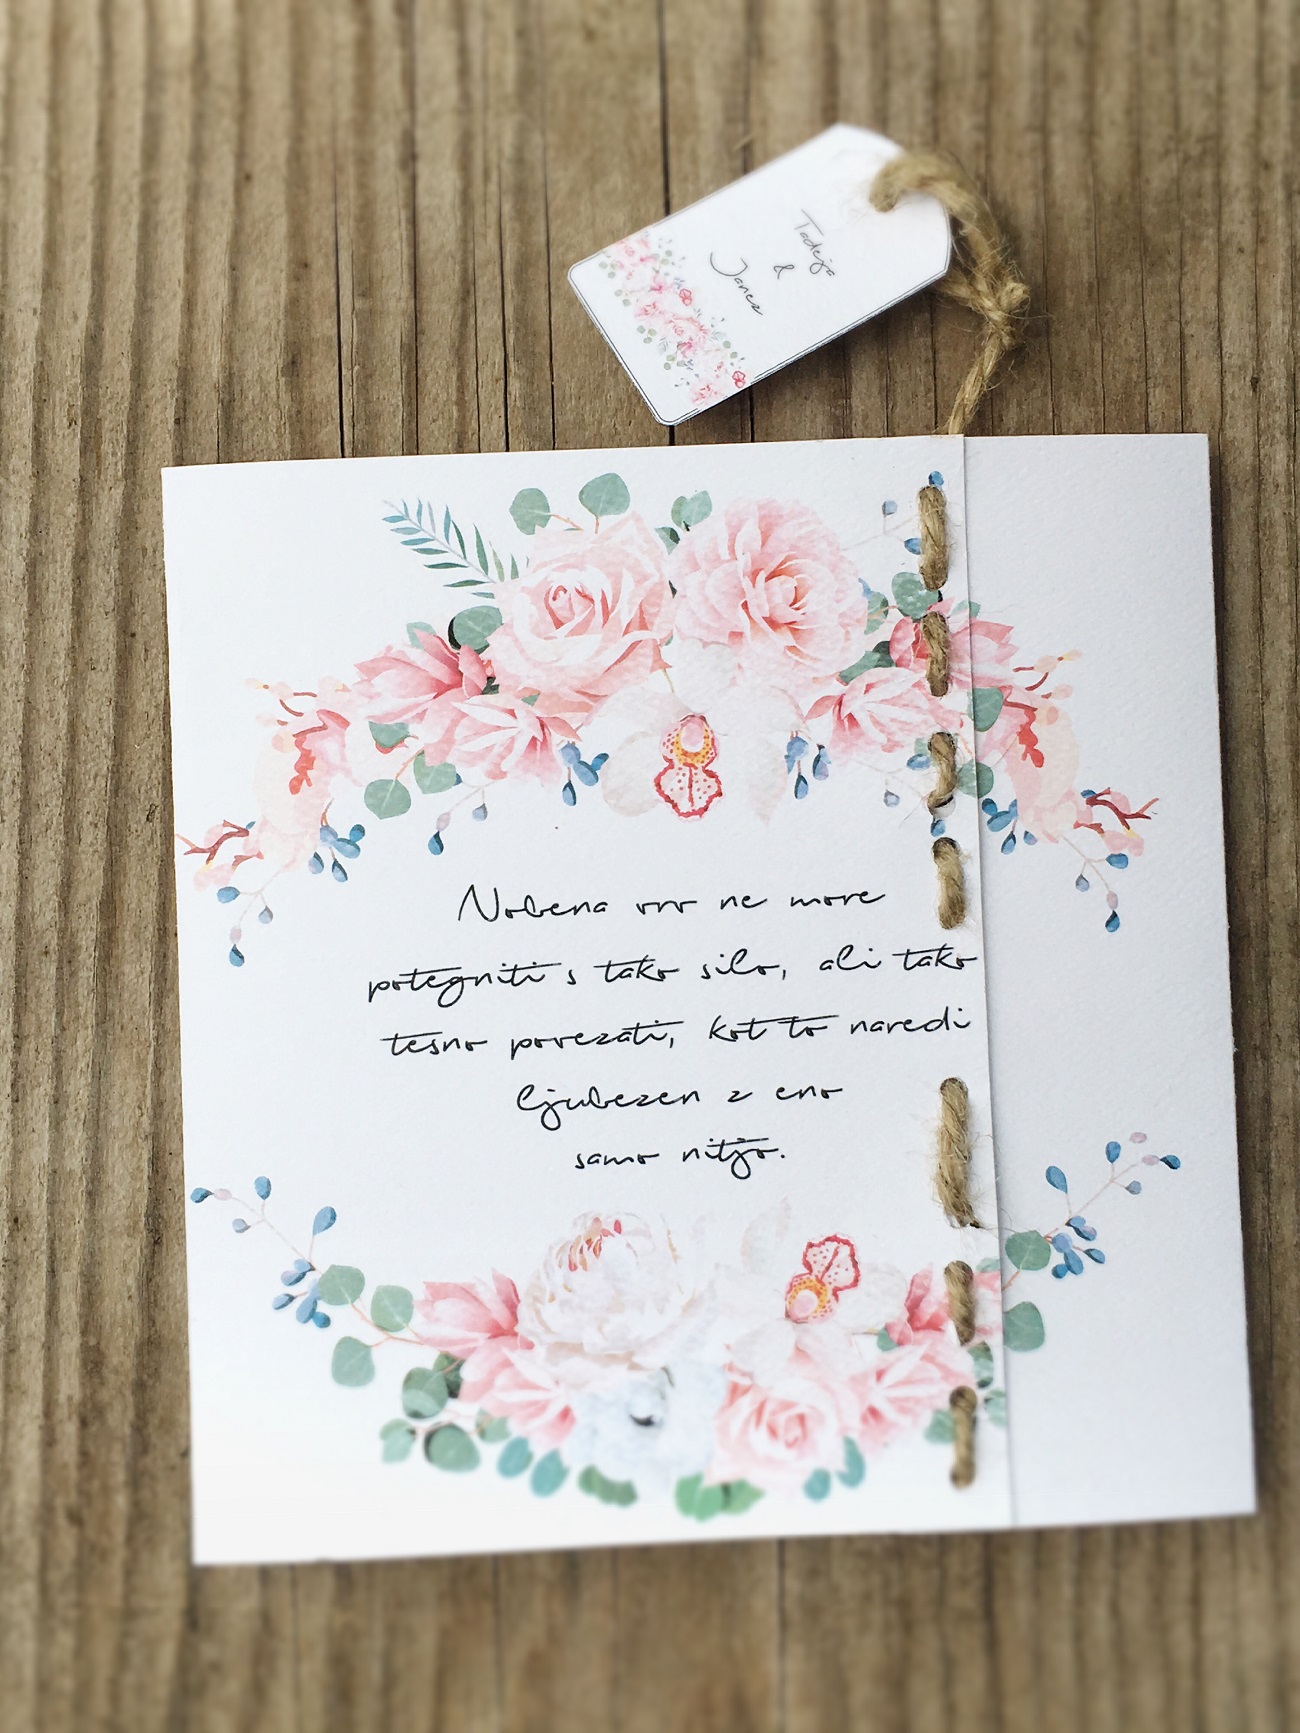 Tadeja
&
Janez
Nobena vrv ne more
potegniti s tako silo, ali tako
tesno povezati, kot to naredi
ljubezen z eno
samo nitjo.